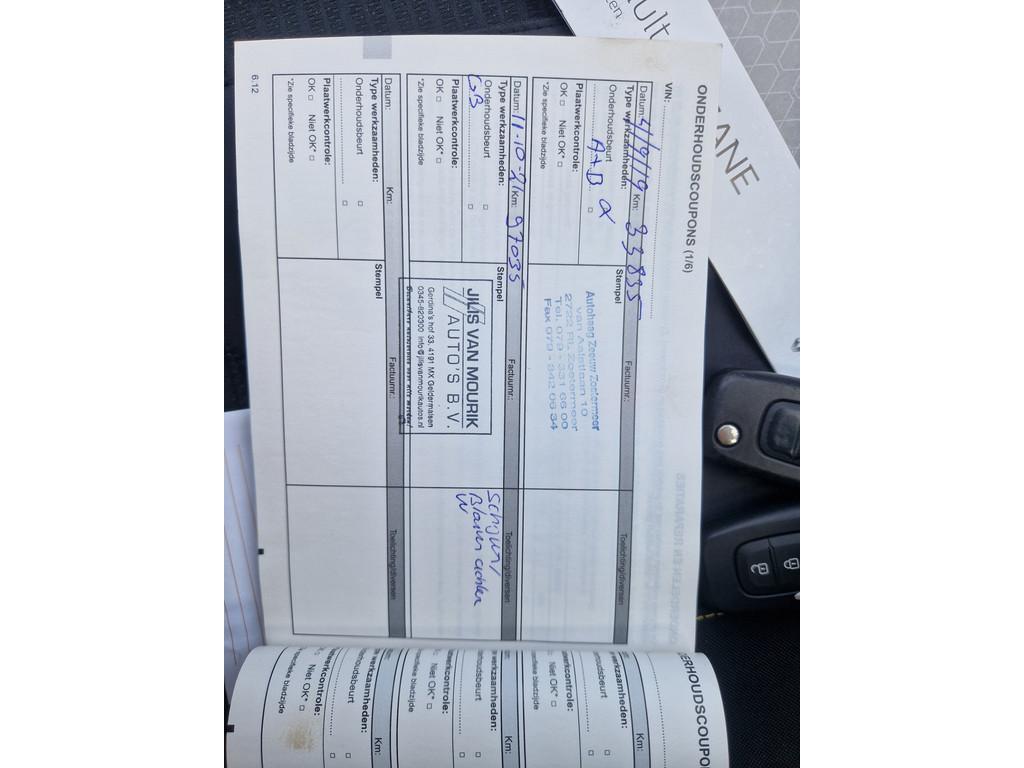 ONDERHOUDSCOUPONS (1/6)
VIN:
Datum: 4/9/19 Km: 33835
Type werkzaamheden:
Onderhoudsbeurt □
A+B □
Plaatwerkcontrole:
OK □ Niet OK* □
*Zie specifieke bladzijde
Stempel
Factuurnr.:
Autohaag Zeeuw Zoetermeer
van Aalstlaan 10
2722 RL Zoetermeer
Tel. 079 - 331 66 00
Fax 079 - 342 06 34
Toelichting/diversen
Datum: 11-10-21 Km: 97035
Type werkzaamheden:
Onderhoudsbeurt □
GB □
Plaatwerkcontrole:
OK □ Niet OK* □
*Zie specifieke bladzijde
Stempel
Factuurnr.:
JILIS VAN MOURIK
AUTO'S B.V.
Gerdina's hof 33, 4191 MX Geldermalsen
0345-820300 info@jilisvanmourikautos.nl
Toelichting/diversen
Schijven/
Blokken achter
Datum: Km:
Type werkzaamheden:
Onderhoudsbeurt □
□
Plaatwerkcontrole:
OK □ Niet OK* □
*Zie specifieke bladzijde
Stempel
Factuurnr.:
Toelichting/diversen
6.12
DERHOUDSCOUPO
Km:
werkzaamheden:
houdsbeurt □
□
werkcontrole:
Niet OK* □
specifieke bladzijde
Km:
werkzaamheden:
rhoudsbeurt □
□
twerkcontrole:
Niet OK* □
specifieke bladzijde
Km:
werkzaamheden:
erhoudsbeurt □
□
atwerkcontrole:
Niet OK* □
specifieke bladzijde
ult
ANE